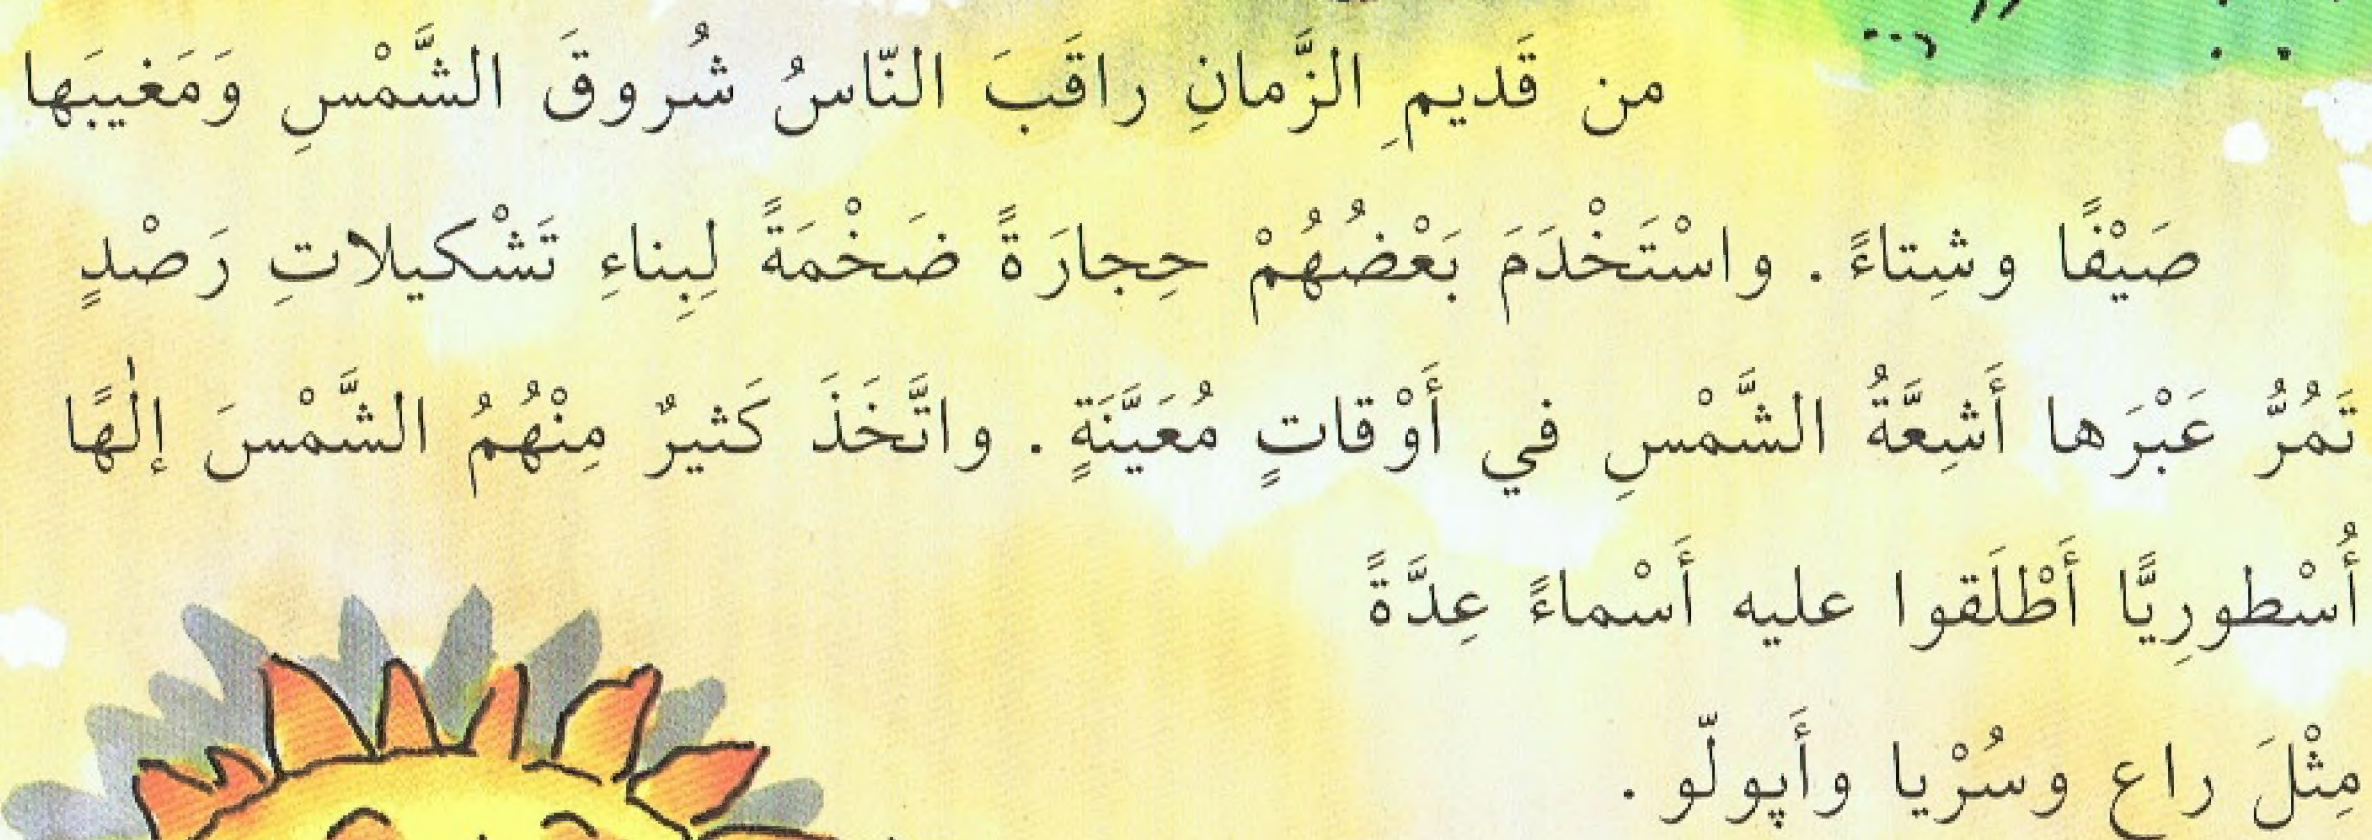 من قَديمِ الزَّمانِ راقَبَ النّاسُ شُروقَ الشَّمْسِ وَمَغيبَها
صَيْفًا وشِتاءً . واسْتَخْدَمَ بَعْضُهُمْ حِجارَةً ضَخْمَةً لِبِناءِ تَشْكيلاتِ رَصْدٍ
تَمُرُّ عَبْرَها أَشِعَّةُ الشَّمْسِ في أَوْقاتٍ مُعَيَّنَةٍ . واتَّخَذَ كَثيرٌ مِنْهُمُ الشَّمْسَ إلٰهًا
أُسْطورِيًّا أَطْلَقوا عليه أَسْماءً عِدَّةً
مِثْلَ راع وسُرْيا وأَپولّو .